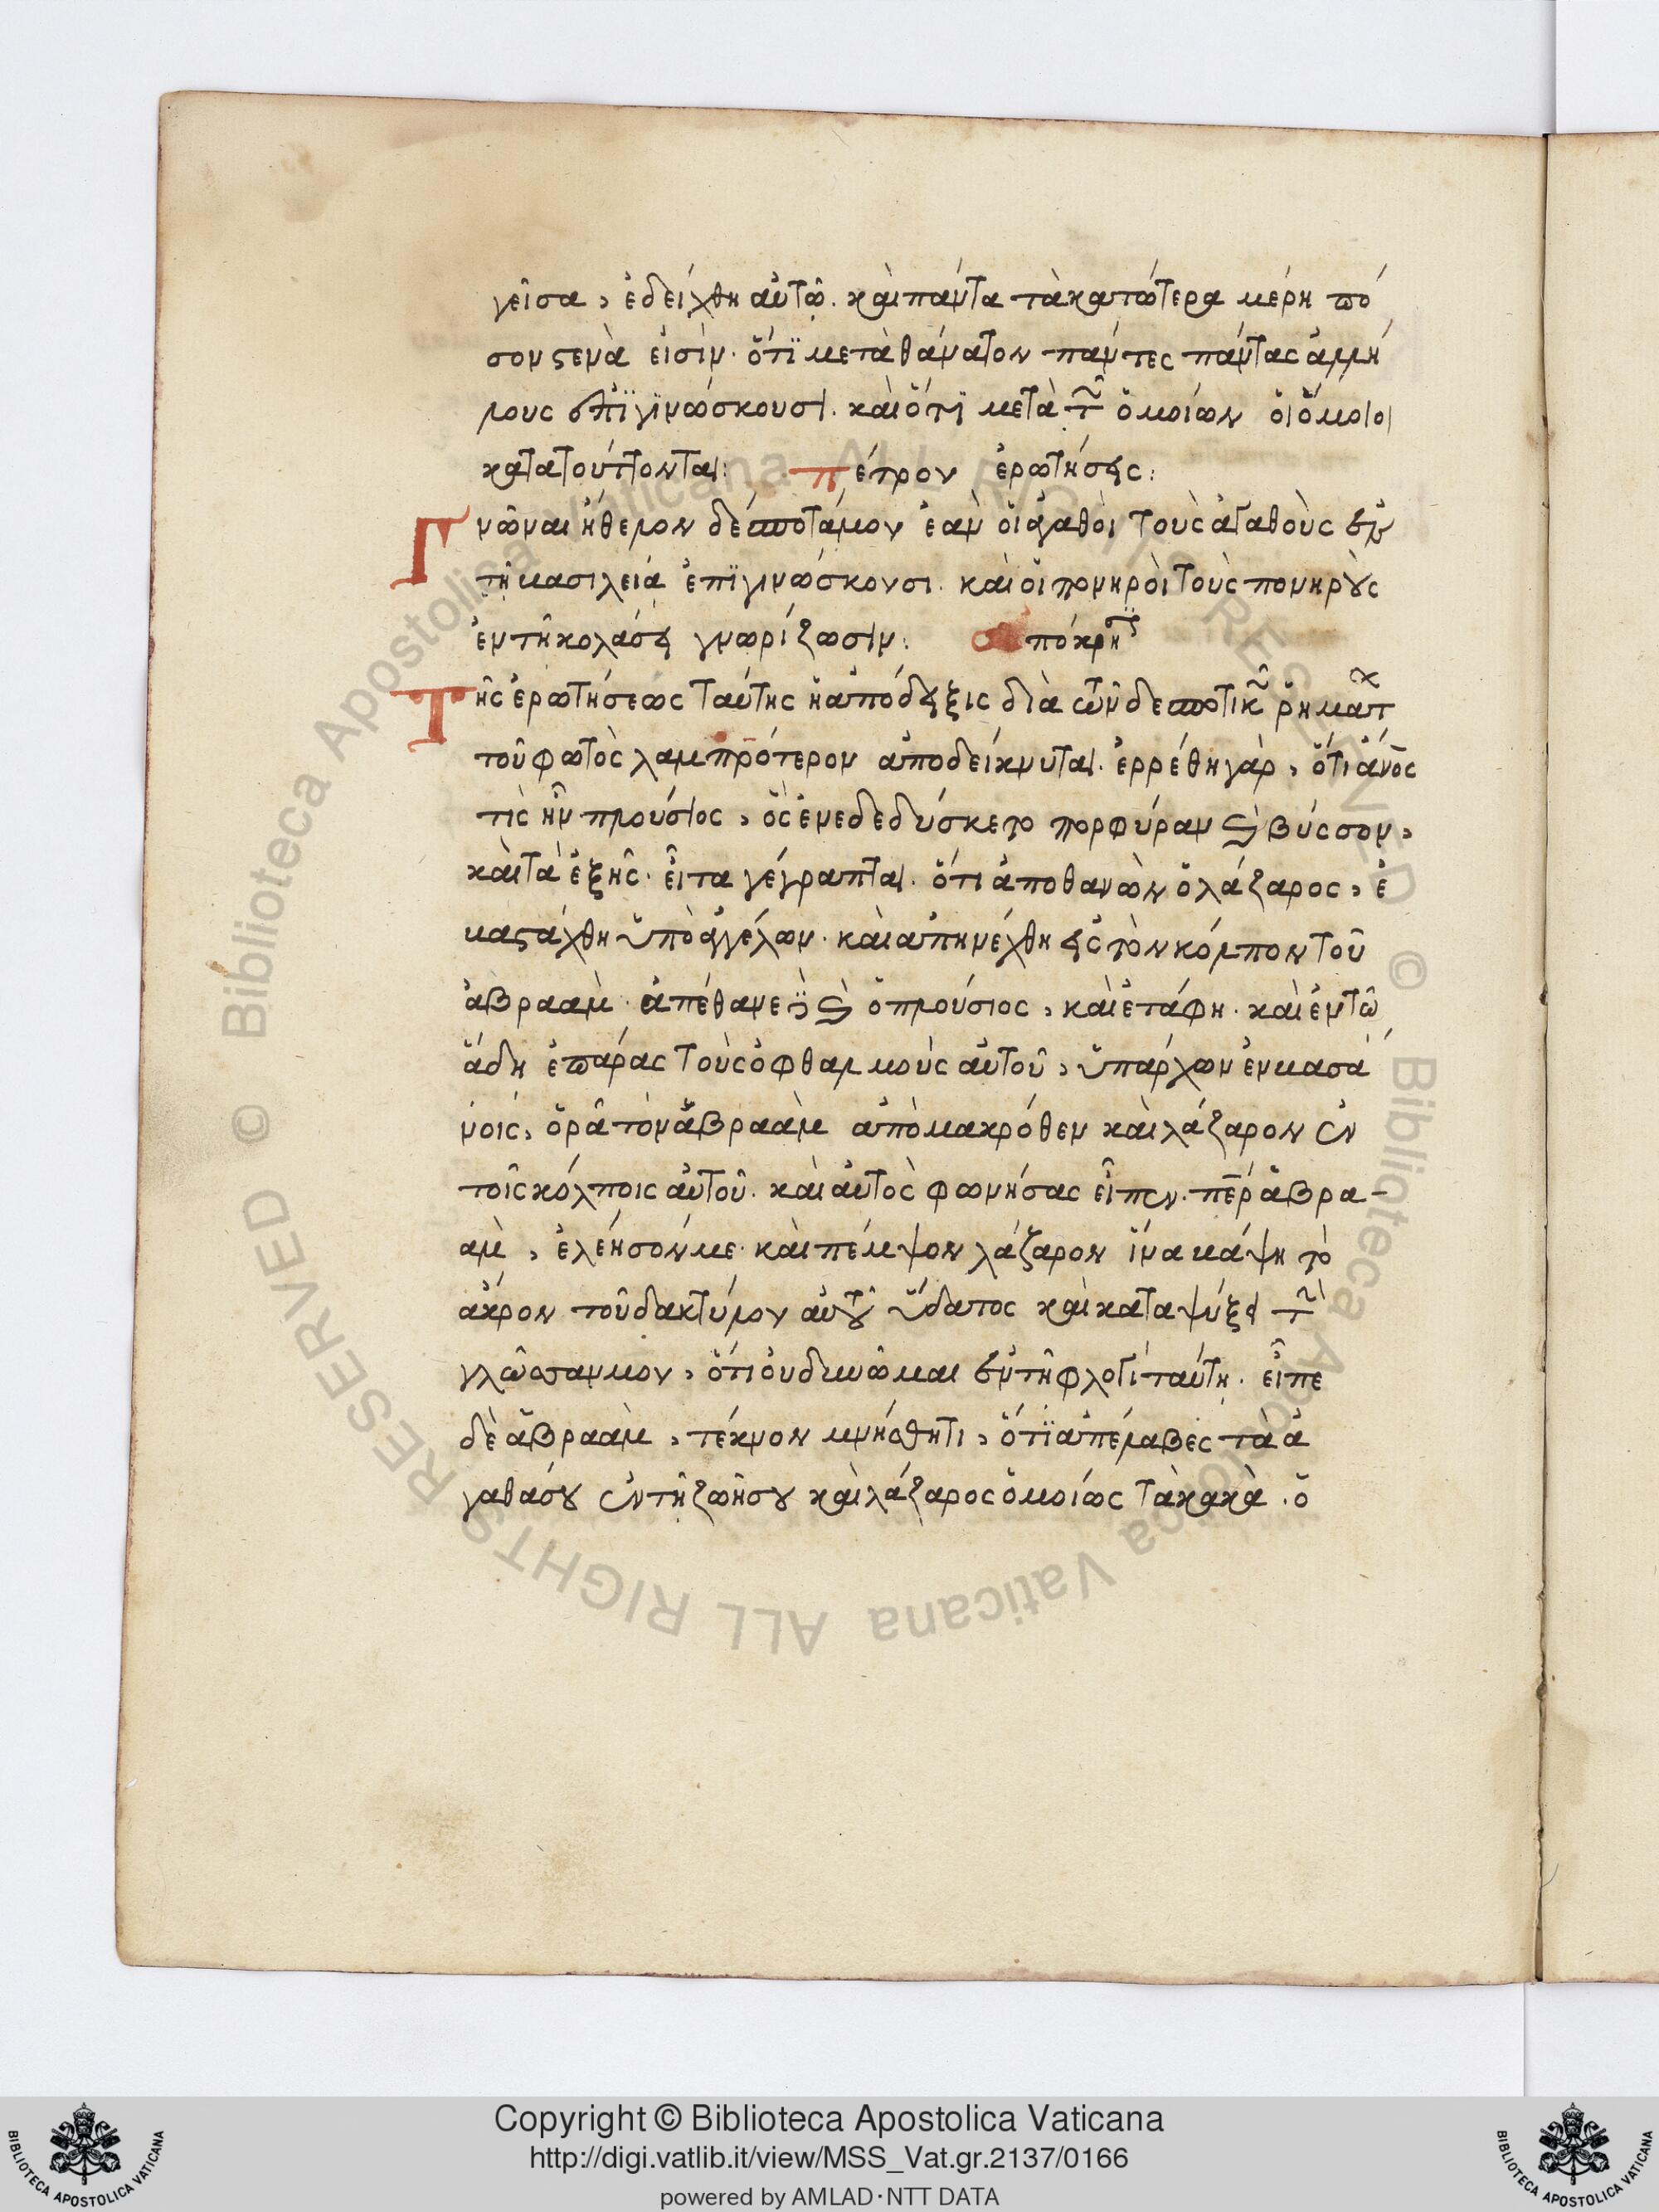 γεῖσα, ἐδείχθη αὐτῶ. καὶ πάντα τὰ κατώτερα μέρη πό
σον στενὰ εἰσὶν. ὅτι μετὰ θάνατον πάντες πάντας ἀλλή
λους ἐπιγινώσκουσι. καὶ ὅτι μετὰ τῶν ὁμοίων οἱ ὅμοιοι
κατατούττονται: πέτρου ἐρωτήσεις:
Γνῶναι ἤθελον δέσποτά μου ἐὰν οἱ ἀγαθοὶ τοὺς ἀγαθοὺς ἐν
τῆ βασιλεία ἐπιγινώσκουσι. καὶ οἱ πονηροὶ τοὺς πονηροὺς
ἐν τῆ κολάσει γνωρίζωσιν: ἀπόκρησις
Τῆς ἐρωτήσεως ταύτης ἡ ἀπόδειξις διὰ τῶν δεσποτικῶν ῥημάτων
τοῦ φωτὸς λαμπρότερον ἀποδείκνυται. ἐρρέθη γὰρ, ὅτι ἄνος
τὶς ἦν πλούσιος, ὃς ἐνεδεδύσκετο πορφύραν καὶ βύσσον,
καὶ τὰ ἑξῆς. εἶτα γέγραπται. ὅτι ἀποθανὼν ὁ λάζαρος, ἐ
βαστάχθη ὑπὸ ἀγγέλων. καὶ ἀπηνέχθη εἰς τὸν κόλπον τοῦ
ἀβραὰμ. ἀπέθανε δὲ καὶ ὁ πλούσιος, καὶ ἐτάφη. καὶ ἐν τῶ
ἅδη ἐπάρας τοὺς ὀφθαλμοὺς αὐτοῦ, ὑπάρχων ἐν βασά
νοις, ὁρᾶ τὸν ἀβραὰμ ἀπὸ μακρόθεν καὶ λάζαρον ἐν
τοῖς κόλποις αὐτοῦ. καὶ αὐτὸς φωνήσας εἶπεν. περ ἀβρα-
ὰμ, ἐλέησόν με. καὶ πέμψον λάζαρον ἵνα βάψη τὸ
ἄκρον τοῦ δακτύλου αὐτοῦ ὕδατος καὶ καταψύξει τὴν
γλῶσσαν μου, ὅτι ὀυδινῶμαι ἐν τῆ φλογὶ ταύτη. εἶπε
δὲ ἀβραὰμ, τέκνον μνήσθητι, ὅτι ἀπέλαβες τὰ ἀ
γαθά σου ἐν τῆ ζωῆ σου καὶ λάζαρος ὁμοίως τὰ κακὰ. ὁ
Copyright © Biblioteca Apostolica Vaticana
http://digi.vatlib.it/view/MSS_Vat.gr.2137/0166
powered by AMLAD·NTT DATA
BIBLIOTECA APOSTOLICA VATICANA
BIBLIOTECA APOSTOLICA VATICANA
© Biblioteca Apostolica Vaticana ALL RIGHTS RESERVED © Biblioteca Apostolica Vaticana ALL RIGHTS RESERVED